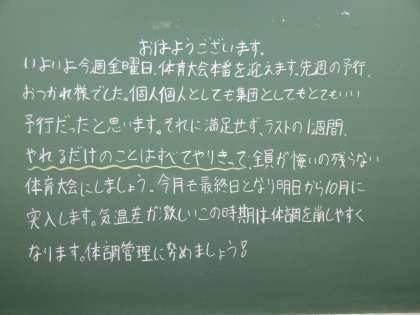 おはようございます.
いよいよ今週金曜日、体育大会本番を迎えます。先週の予行、
おつかれ様でした。個人個人としても集団としてもとてもいい
予行だったと思います。それに満足せず、ラストの1週間、
やれるだけのことはすべてやりきって、全員が悔いの残らない
体育大会にしましょう。今月も最終日となり明日から10月に
突入します。気温差が激しいこの時期は体調を崩しやすく
なります。体調管理に努めましょう!